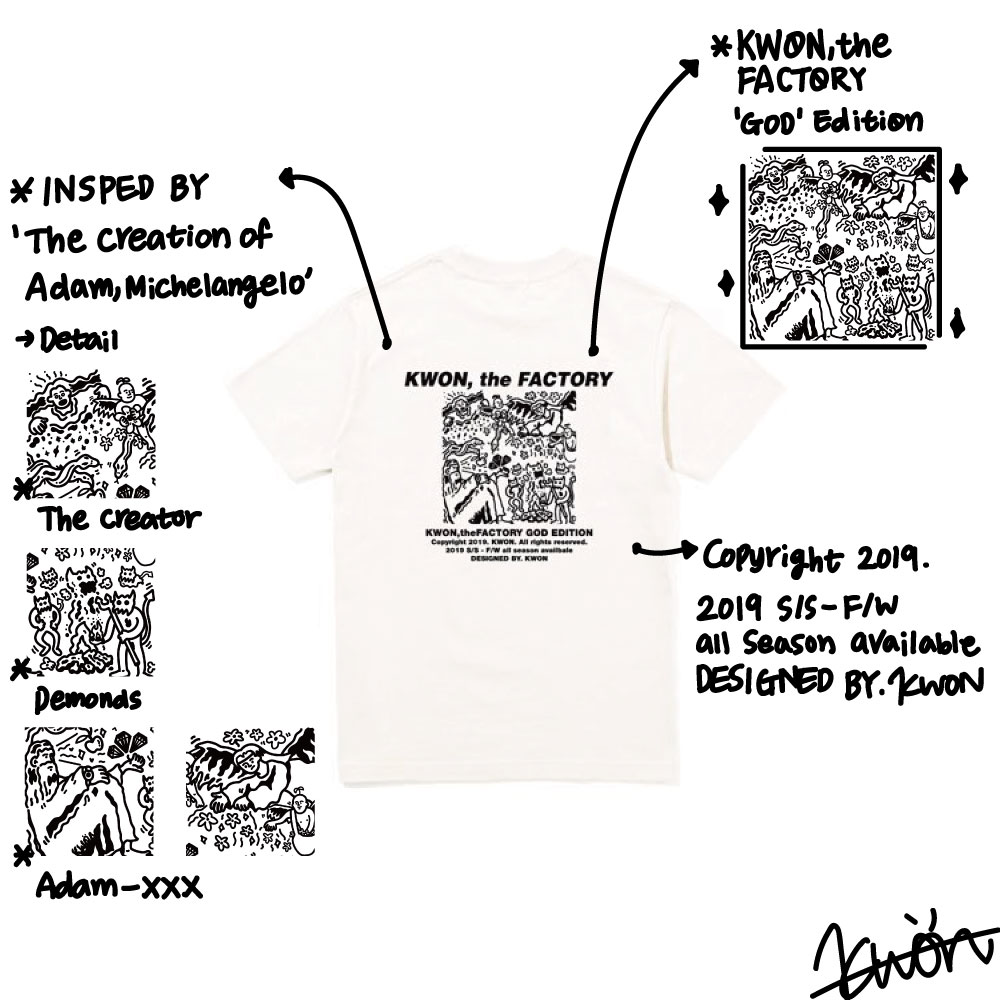 *KWON,the
FACTORY
'GOD' Edition
* INSPED BY
'The Creation of
Adam, Michelangelo'
→ Detail
*
The creator
*
Demonds
*
Adam-XXX
KWON, the FACTORY
KWON,theFACTORY GOD EDITION
Copyright 2019. KWON. All rights reserved.
2019 S/S - F/W all season availbale
DESIGNED BY. KWON
Copyright 2019.
2019 S/S-F/W
all season available
DESIGNED BY. KWON
Kwön